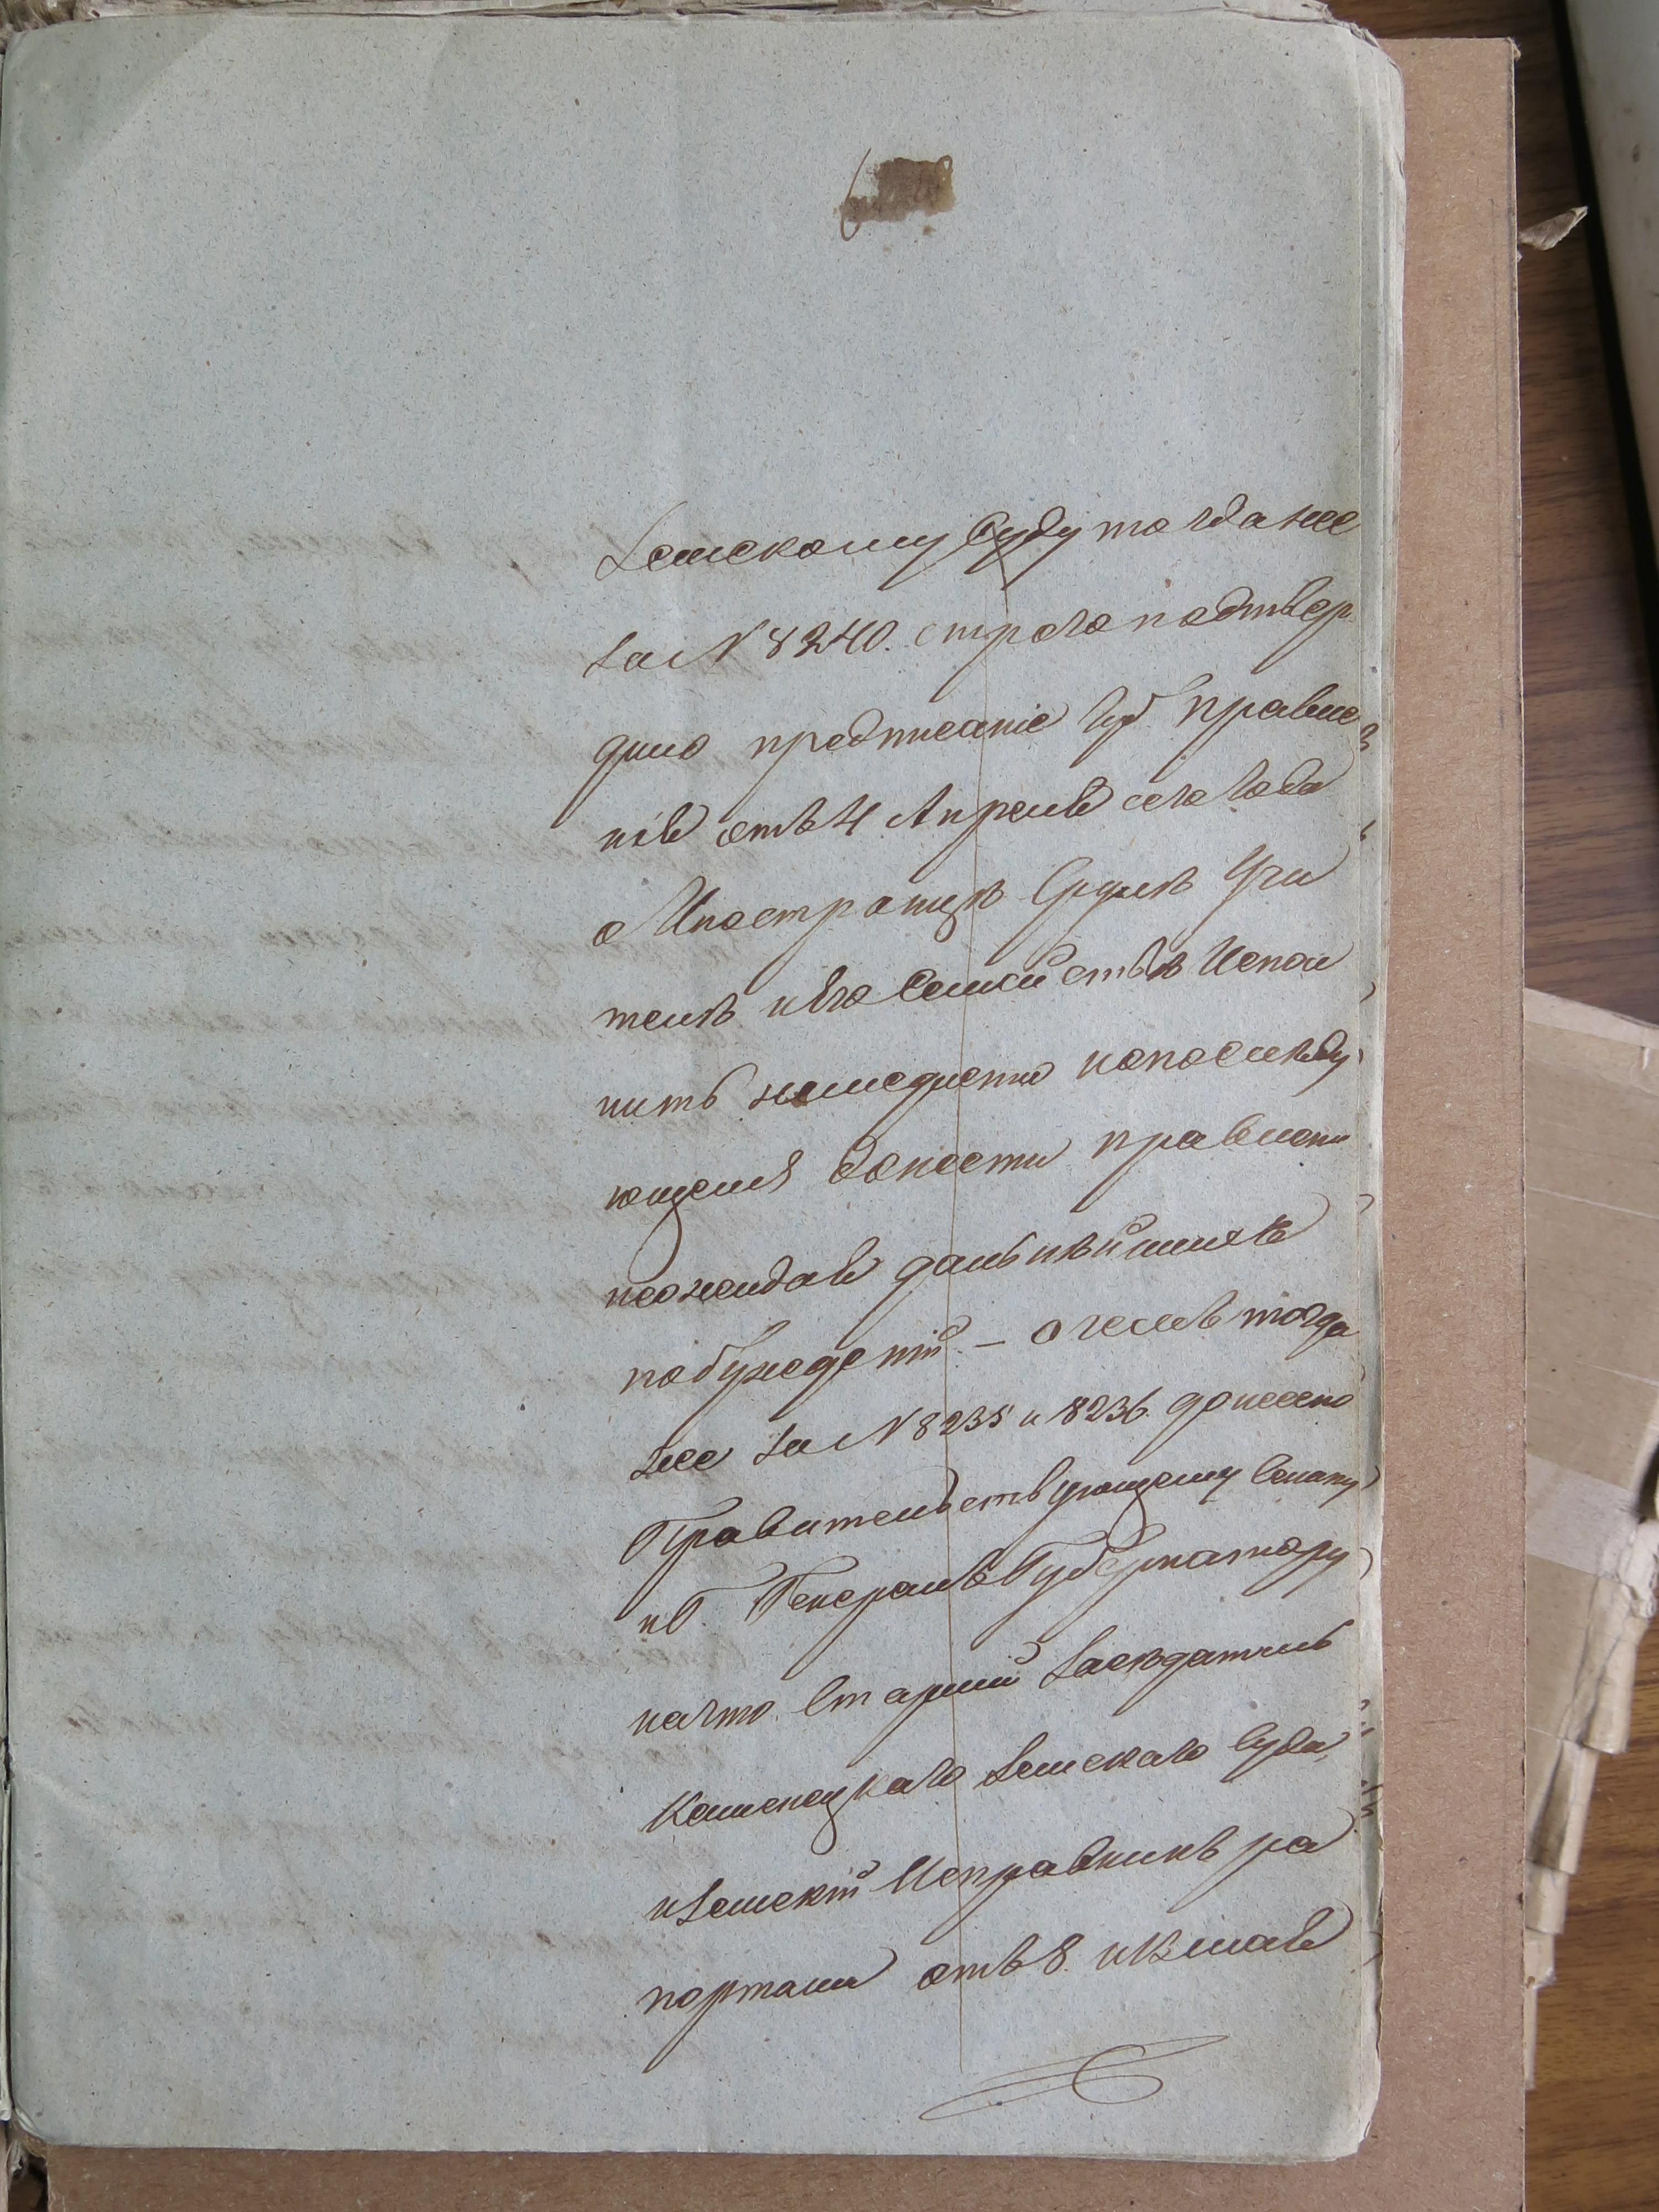 Земскому Суду тогда же
за N 8240. строго подтвер
дило предписаніе Губ. правле
нія отъ 4 Апреля сего года
о Иностранцѣ Учи
телѣ и его Семействѣ Испол
нить немедленно и о послѣду
ющемъ донести правлению
неожидая дальнѣйшихъ
побужденій — о чемъ тогда
же за N 8235 и 8236. донесено
Правительствующему Сенату
и Г. Генералъ Губернатору
на что Старшій Засѣдатель
Каменецкаго Земскаго Суда,
и Земскій Исправникъ ра
портами отъ 8. и мая